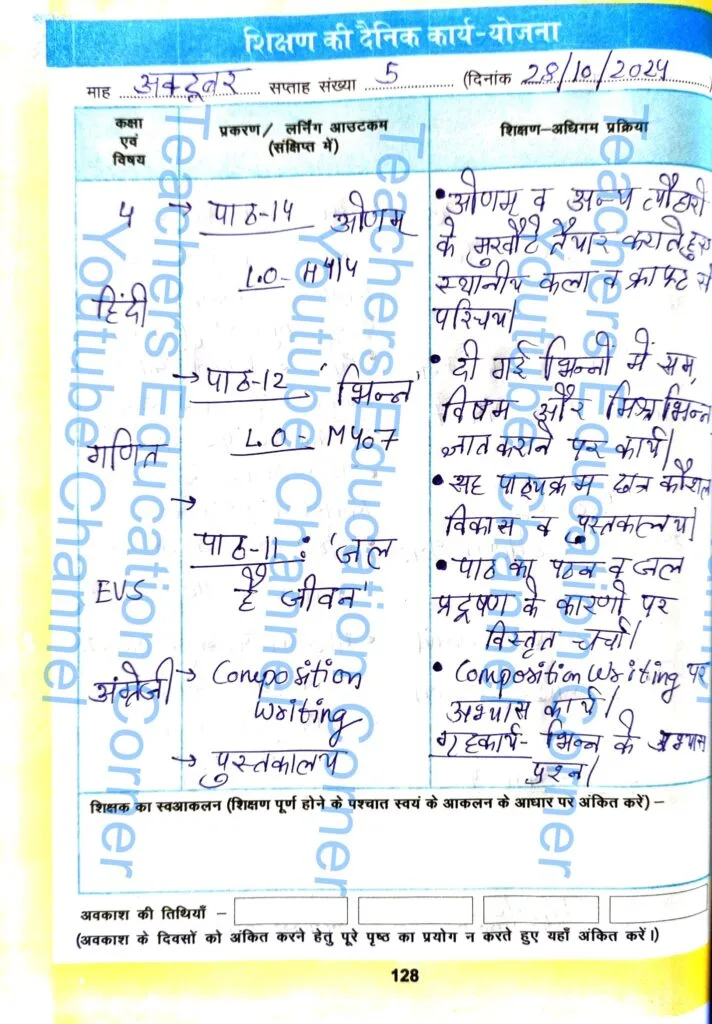 शिक्षण की दैनिक कार्य-योजना
माह अक्टूबर सप्ताह संख्या 5 (दिनांक 28/10/2024)
कक्षा एवं विषय
प्रकरण/ लर्निंग आउटकम (संक्षिप्त में)
शिक्षण-अधिगम प्रक्रिया
4 → पाठ-14 ओणम
L.O- H414
हिंदी
• ओणम व अन्य त्यौहारो
के मुखौटे तैयार कराते हुए
स्थानीय कला व क्राफ्ट से
परिचय।
→ पाठ-12 'भिन्न'
L.O- M407
गणित
• दी गई भिन्नों में सम,
विषम और मिश्र भिन्न
ज्ञात कराने पर कार्य।
→
• सह पाठ्यक्रम छात्र कौशल
विकास व पुस्तकालय।
पाठ-11 : 'जल
है जीवन'
EVS
• पाठ का पठन व जल
प्रदूषण के कारणो पर
विस्तृत चर्चा।
अंग्रेजी → Composition
Writing
• Composition Writing पर
अभ्यास कार्य।
→ पुस्तकालय
गृहकार्य- भिन्न के अभ्यास
प्रश्न।
शिक्षक का स्वआकलन (शिक्षण पूर्ण होने के पश्चात स्वयं के आकलन के आधार पर अंकित करें) –
अवकाश की तिथियाँ –
(अवकाश के दिवसों को अंकित करने हेतु पूरे पृष्ठ का प्रयोग न करते हुए यहाँ अंकित करें।)
128
Teachers Education Corner
Youtube Channel
Teachers Education Corner
Youtube Channel
Teachers Education Corner
Youtube Channel